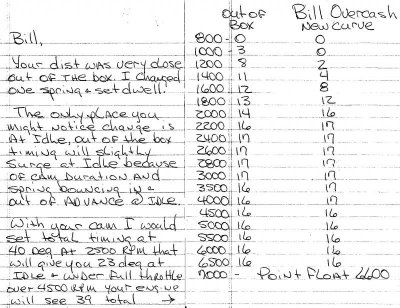 Bill,
Your dist was very close
out of the box. I changed
one spring + set dwell.
The only place you
might notice change is
at idle, out of the box
timing will slightly
surge at idle because
of cam duration and
spring bouncing in +
out of advance @ idle.
With your cam I would
set total timing at
40 deg at 2500 rpm that
will give you 23 deg at
idle + under full throttle
over 4500 rpm your engine
will see 39 total →
Out of Box Bill Overcash New Curve
800 - 0 0
1000 - 3 0
1200 - 8 2
1400 - 11 4
1600 - 12 8
1800 - 13 12
2000 - 14 16
2200 - 16 17
2400 - 17 17
2600 - 17 17
2800 - 17 17
3000 - 17 17
3500 - 16 17
4000 - 16 17
4500 - 16 16
5000 - 16 16
5500 - 16 16
6000 - 16 16
6500 - 16 16
7000 - Point Float 6600